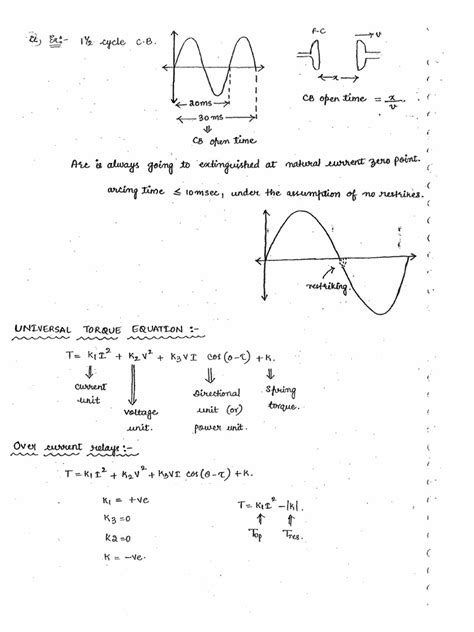 Ex:- 1½ cycle C.B.
F.C
v
x
20ms
30ms
CB open time
CB open time = x/v
Arc is always going to extinguished at natural current zero point.
arcing time ≤ 10msec, under the assumption of no restrikes.
restriking.
UNIVERSAL TORQUE EQUATION :-
T = K₁I² + K₂V² + K₃VI cos(θ-τ) + K.
Current unit
Voltage unit.
Directional unit (or) power unit.
Spring torque.
Over current relays:-
T = K₁I² + K₂V² + K₃VI cos(θ-τ) + K.
K₁ = +ve
K₃ = 0
K2 = 0
K = -ve.
T = K₁I² - |K|.
Top
Tres.